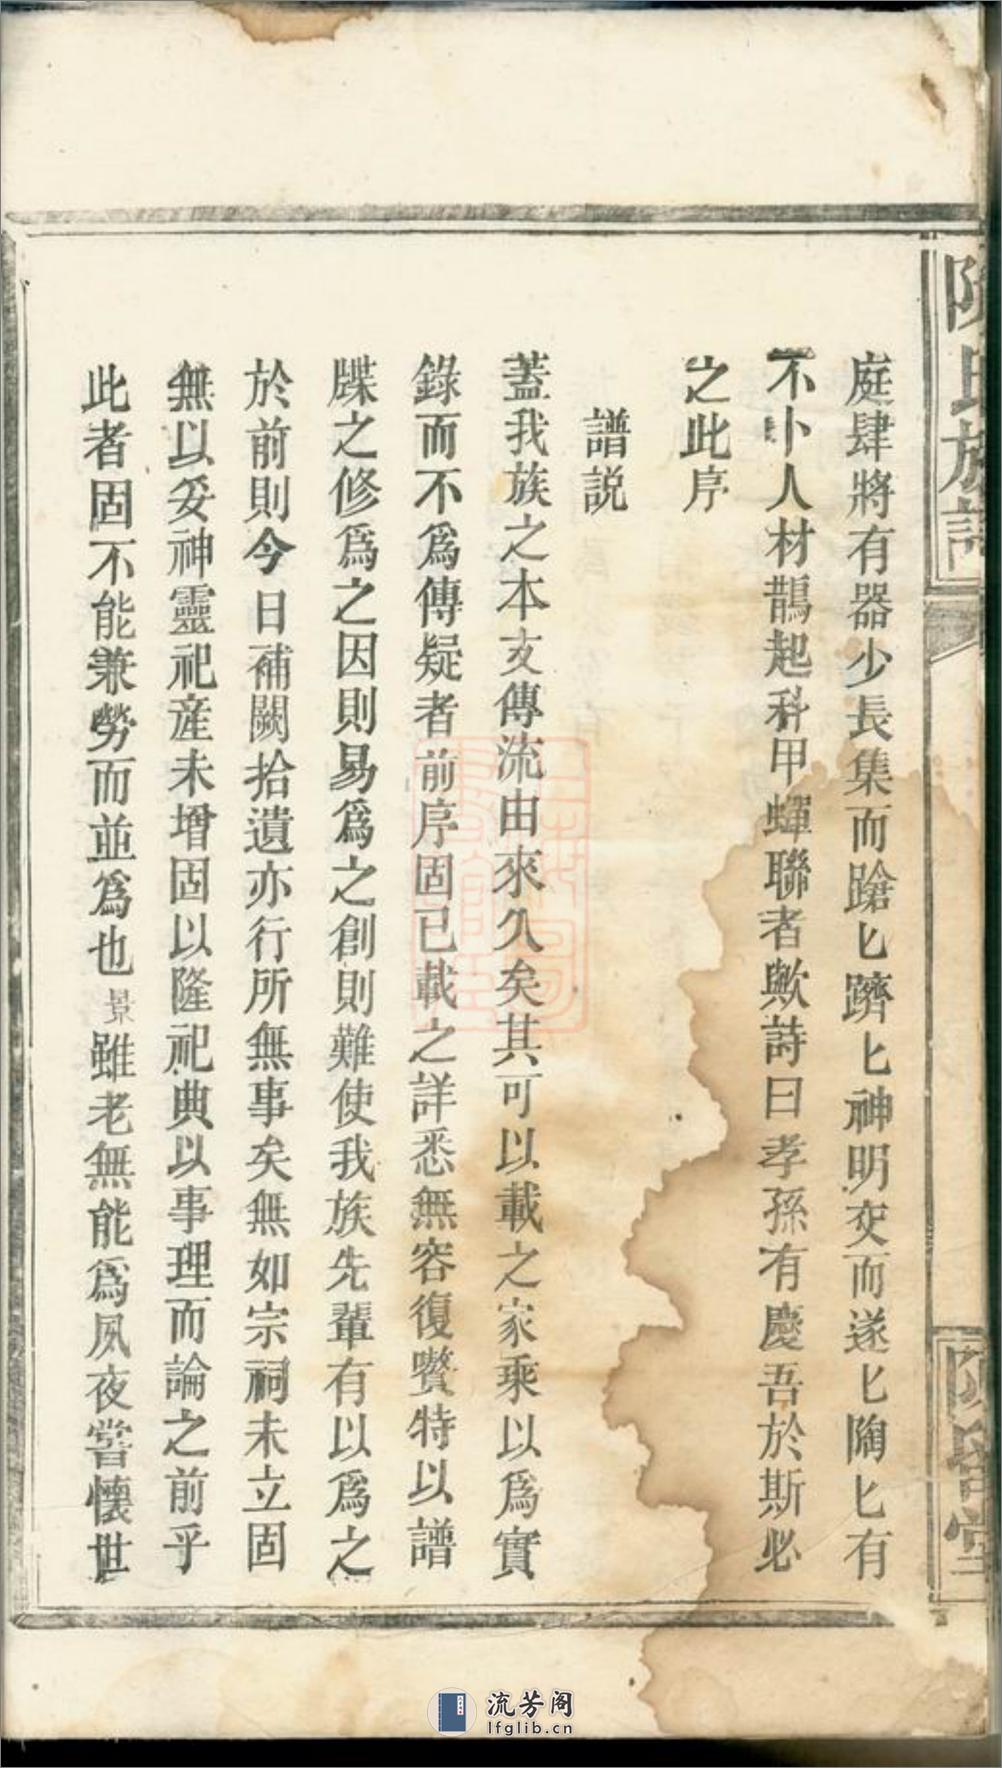 庭肆將有器少長集而蹌匕躋匕神明交而遂匕陶匕有
不卜人材鵲起科甲蟬聯者歟詩曰孝孫有慶吾於斯必
之此序
譜説
蓋我族之本支傳流由來久矣其可以載之家乘以爲實
錄而不爲傳疑者前序固已載之詳悉無容復贅特以譜
牒之修爲之因則易爲之創則難使我族先輩有以爲之
於前則今日補闕拾遺亦行所無事矣無如宗祠未立固
無以妥神靈祀産未增固以隆祀典以事理而論之前乎
此者固不能兼勞而並爲也景雖老無能爲夙夜嘗懷世
氏族譜
堂
流芳阁
lfglib.cn